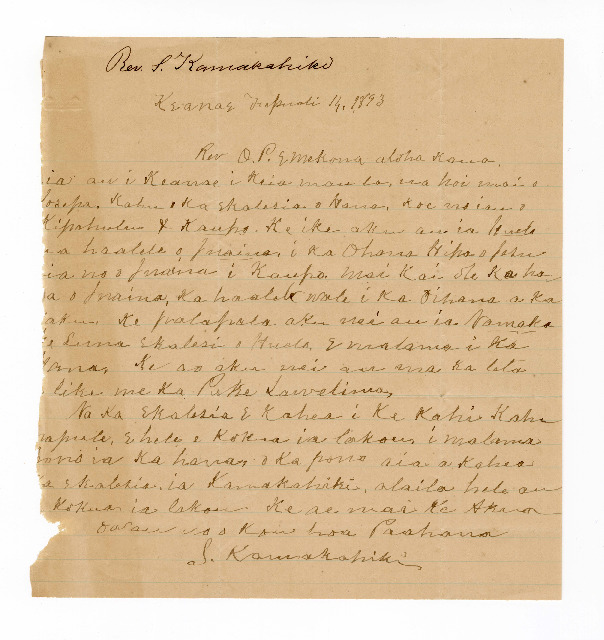 Rev. S. Kamakahiki
Keanae 14, 1893
Rev O. P. Emekona aloha kaua,
ia au i Keanae i keia mau la, ua hoi mai o
Iosepa, Kahu o ka Ekalesia o Hana, koe no iau o
Kipahulu & Kaupo. Ke ike aku au ia Huelo
ua haalele o Inaina, i ka Ohana Hipa o Iesu
ia no o Inaina i Kaupo. mai kai ole ka ha-
a o Inaina, ka haalele wale i ka Oihana a ka
aku. Ke palapala aku nei au ia Namaka
e Luna Ekalesia o Huelo, E malama i ka
Hana, Ke ao aku nei au ma ka leta
like me ka Puke
Na ka Ekalesia E kahea i ke kahi Kahu
hapule, E hele e kokua ia lakou, i malama
pono ia ka hana, o ka pono aia a kahea
ka Ekalesia, ia Kamakahiki, alaila hele au
kokua ia lakou Ke ae mai ke Akua
owau no o kou hoa Paahana
S. Kamakahiki